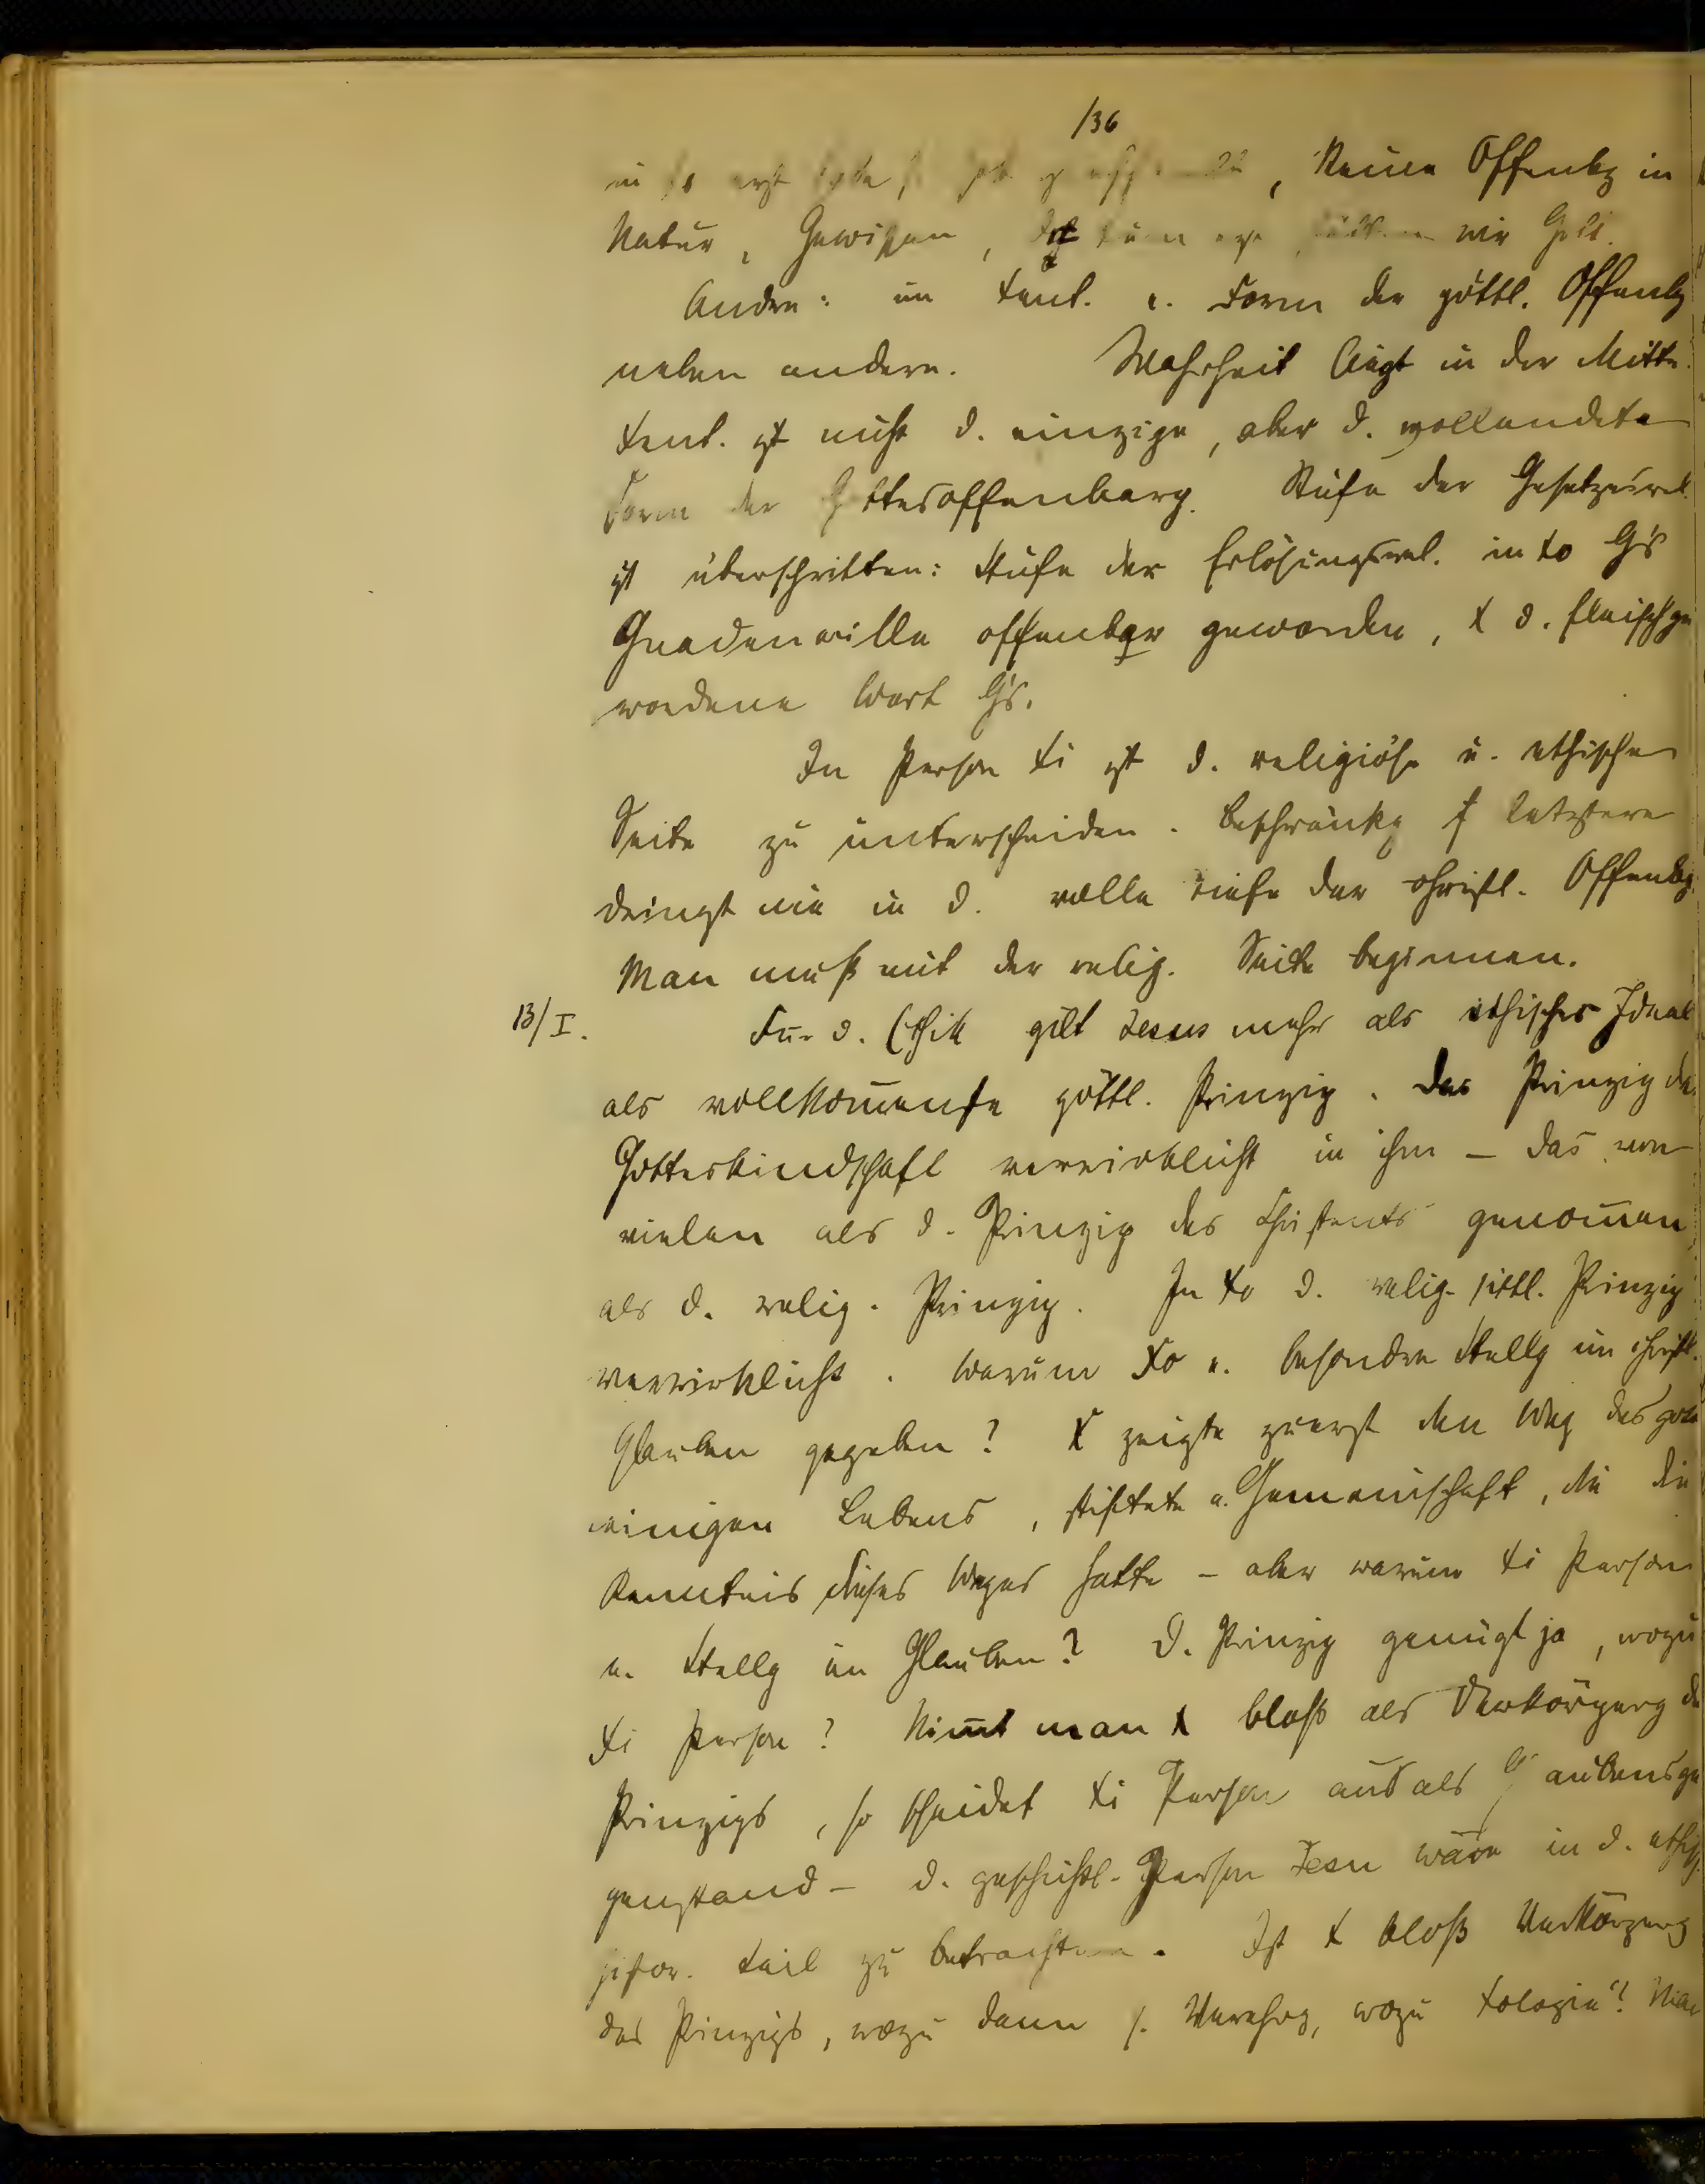 136
in Keine Offenbg in
Natur, Gewissen, wir Gott.
Andre: im Xent. e. Form der göttl. Offenbg
neben andern. Wahrheit liegt in der Mitte.
Xent. ist nicht d. einzige, aber d. vollendete
Form der Gottesoffenbarg. Stufe der Gesetzesrel.
ist überschritten: Stufe der Erlösungsrel. in Xo G's
Gnadenwille offenbar geworden, X d. fleischge
wordene Wort G's.
In Person Xi ist d. religiöse u. ethische
Seite zu unterscheiden. Beschränkg f letztere
dringt nie in d. volle Tiefe der christl. Offenbg.
Man muß mit der relig. Seite beginnen.
13/I. Für d. Ethik gilt Jesus mehr als ethisches Ideal
als vollkom̄enste göttl. Prinzip. Das Prinzip der
Gotteskindschaft verwirklicht in ihm – das von
vielen als d. Prinzip des Christents genom̄en
als d. relig. Prinzip. In Xo d. relig. sittl. Prinzip
verwirklicht. Warum Xo e. besondre Stellg im christl.
Glauben gegeben? X zeigte zuerst den Weg des gott
einigen Lebens, stiftete e. Gemeinschaft, die die
Kenntnis dieses Weges hatte – aber warum Xi Person
e. Stellg im Glauben? D. Prinzip genügt ja, wozu
Xi Person? Nim̄t man X bloß als Verkörperg des
Prinzips, so scheidet Xi Person aus als Glaubensge
genstand – d. geschichtl. Person Jesu wäre in d. ethisch
histor. Teil zu betrachten. Ist X bloß Verkörperg
des Prinzips, wozu dann s. Verehrg, wozu Xologie? Man